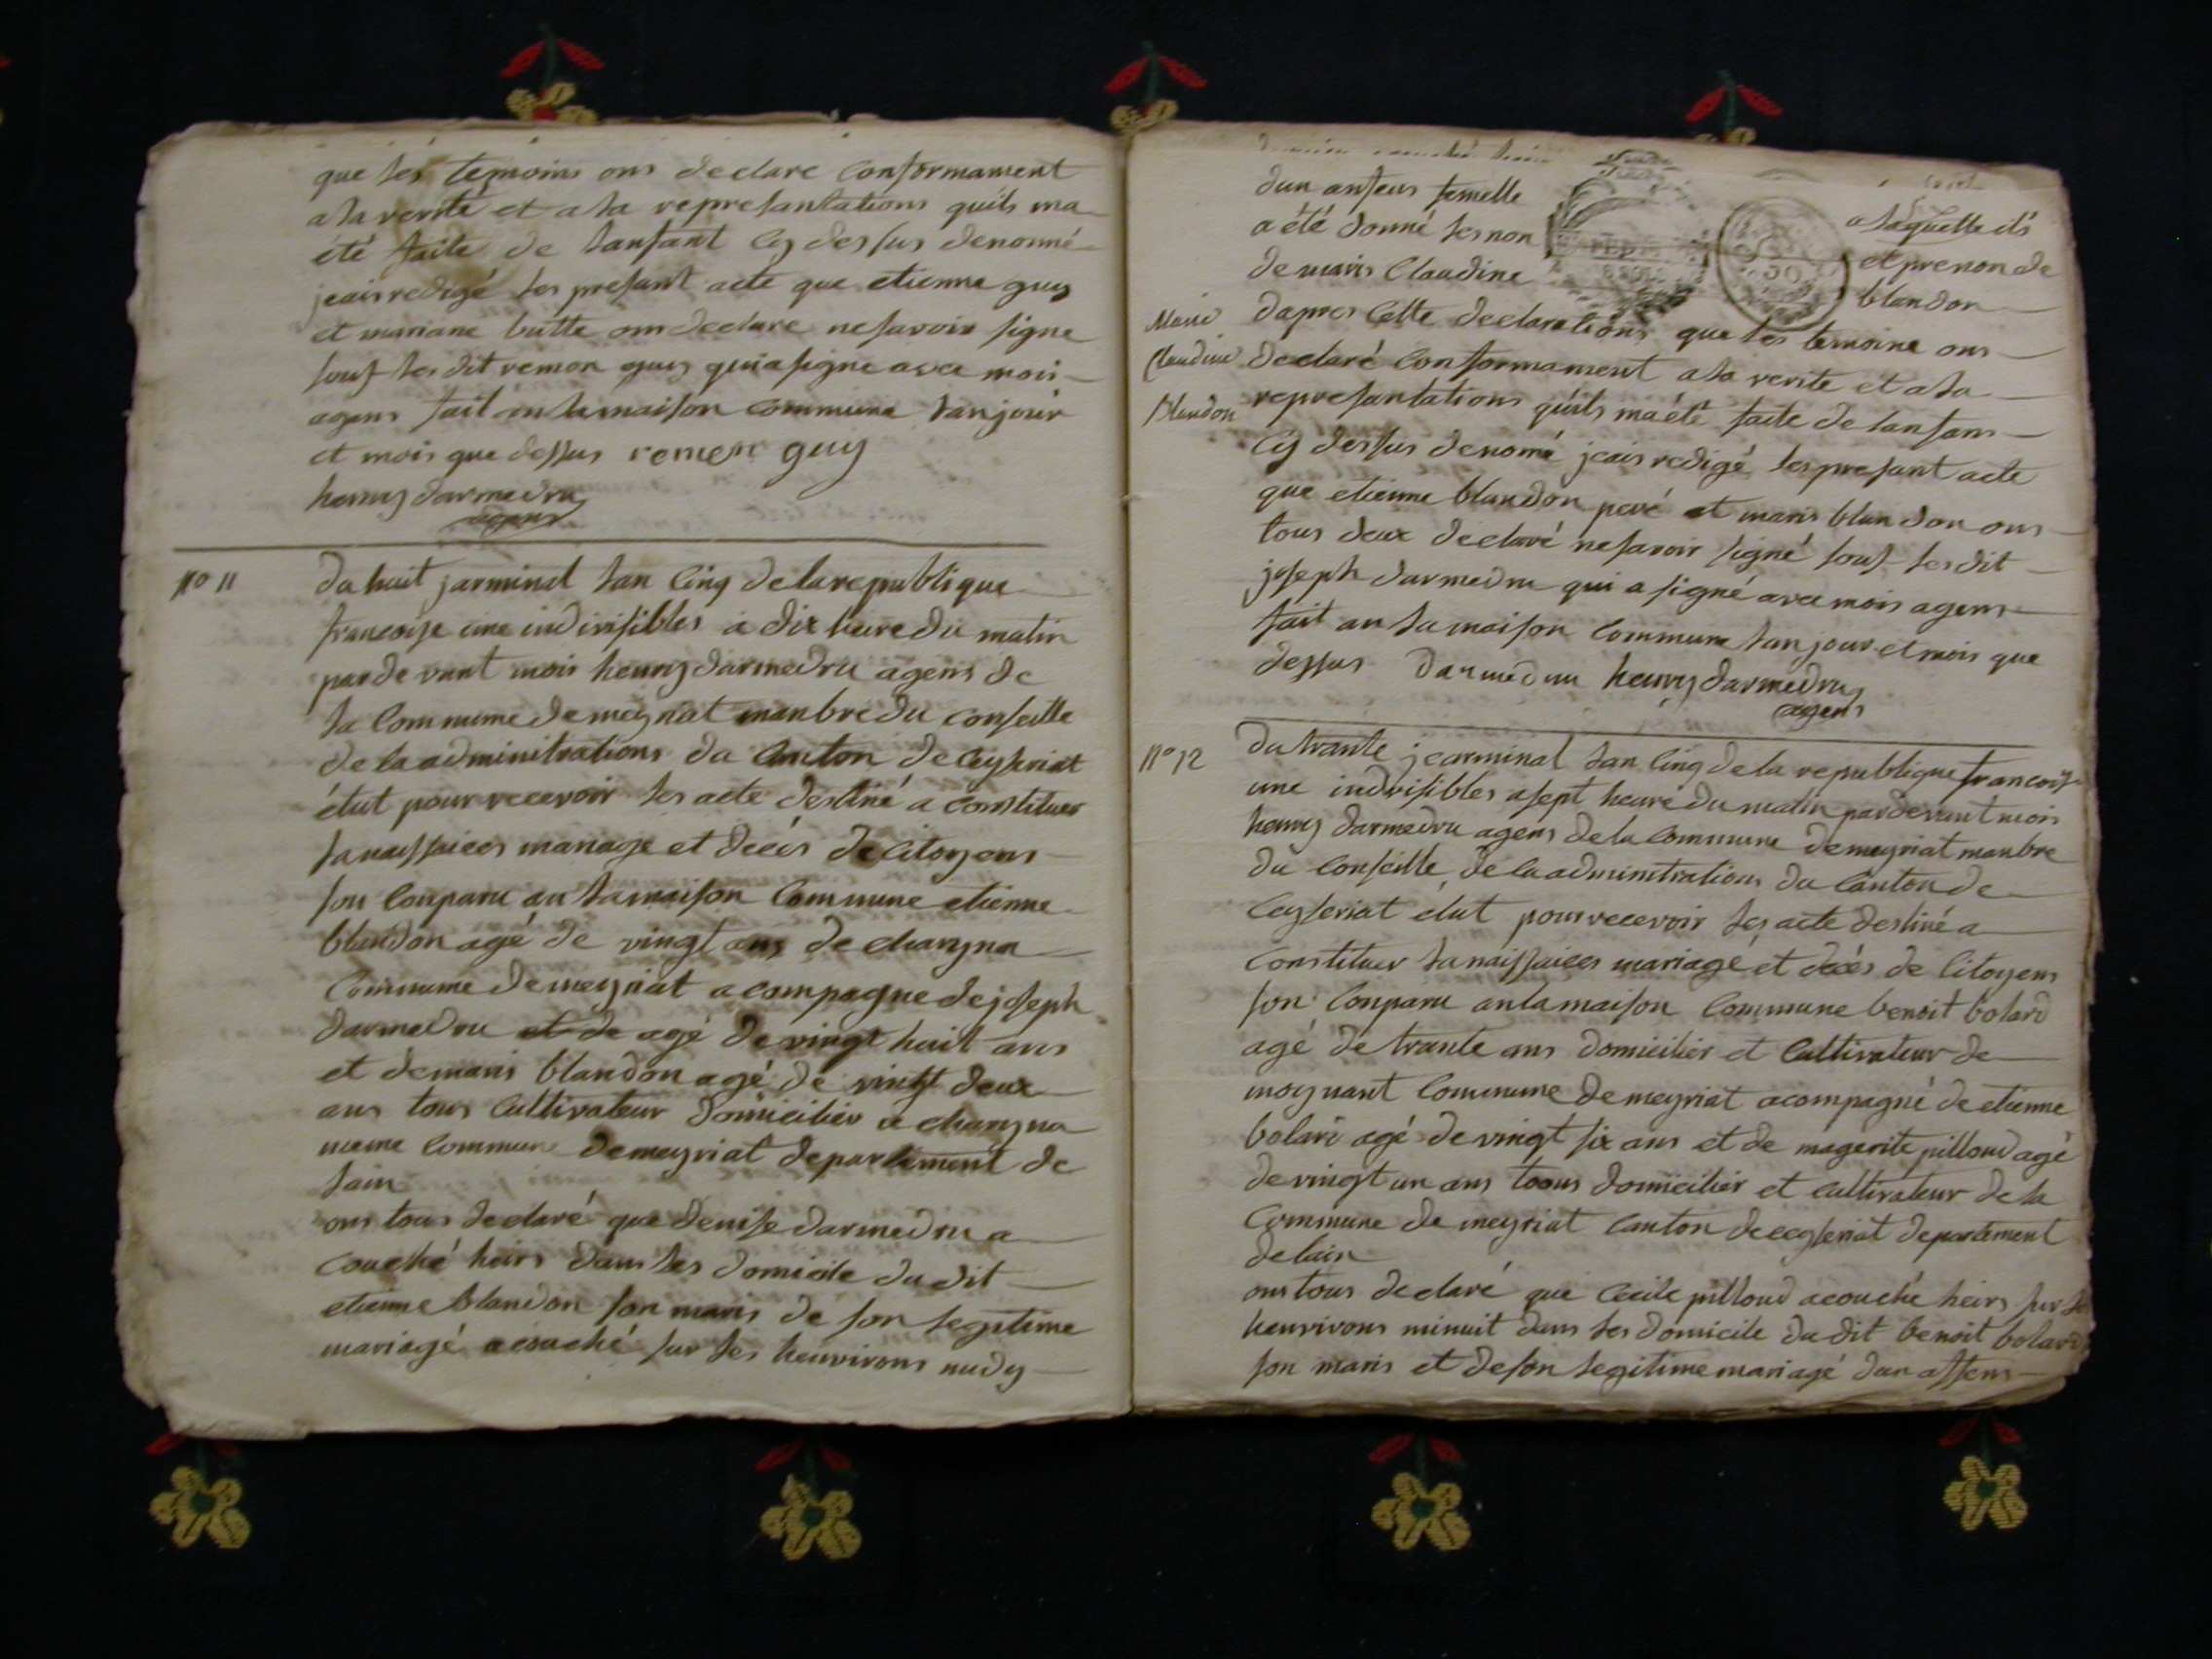 que les temoins ons declare Conformament
a la verité et a la represantations quils ma
été faite de lanfant Cy dessus denonmé
jeais redigé les presant acte que etienne guy
et mariane butte ons declare ne savoir signe
souf les dit remon guy qui a signe avce mois
agens fait an la maison commune lan jour
et mois que dessus remon guy
henry darmedru
agens
N° 11
du huit jarminal lan Cinq de la republique
francoise une indivisibles a dix heure du matin
par de vant mois henry darmedru agens de
la Commune de meyriat manbre du conseille
de la adminitrations du Canton de Ceyseriat
élut pour recevoir les acte destiné a constituer
la naissaices mariage et decés de Citoyens
son Conparu an la maison Commune etienne
blandon agé de vingt ans de charyna
Commune de meyriat a compagne de joseph
darmedru et de agé de vingt huit ans
et de maris blandon agé de vingt deux
ans tous Cultivateur domicilier a charyna
meme commune de meyriat departement de
lain
ons tous declaré que denise darmedru a
couché heirs dans les domicile du dit
etienne blandon son maris de son legitime
mariagé acouché sur les heuvirons midy
dun anfens femelle a laquelle ils
a été donné les non et prenon de
de maris Claudine blandon
Marie
Claudine
blandon
dapres Cette declarations que les temoins ons
declaré Conformament a la verite et a la
represantations quils ma été faite de lanfans
Cy dessus denomé jeais redigé les presant acte
que etienne blandon peré et maris blandon ons
tous deux declaré ne savoir signé souf les dit
joseph darmedru qui a signé avce mois agens
fait an la maison Commune lan jour et mois que
dessus darmedru henry darmedru
agens
N° 12
du trante jearminal lan Cinq de la republique francois
une indivisibles a sept heure du matin par devant mois
henry darmedru agens de la Commune de meyriat manbre
du Conseille de la adminitrations du Canton de
Ceyseriat élut pour recevoir les acte destiné a
Constituer la naissaices mariage et decés de Citoyens
son Conparu an la maison Commune benoit bolard
agé de trante ans domicilier et Cultivateur de
moynant Commune de meyriat acompagné de etienne
bolard agé de vingt six ans et de magerite pilloud agé
de vingt un ans toous domicilier et cultivateur de la
Commune de meyriat Canton de ceyseriat departement
de lain
ons tous declaré que Cecile pilloud acouché heirs sur les
heuvirons minuit dans les domicile du dit benoit bolard
son maris et de son legitime mariagé dun affens